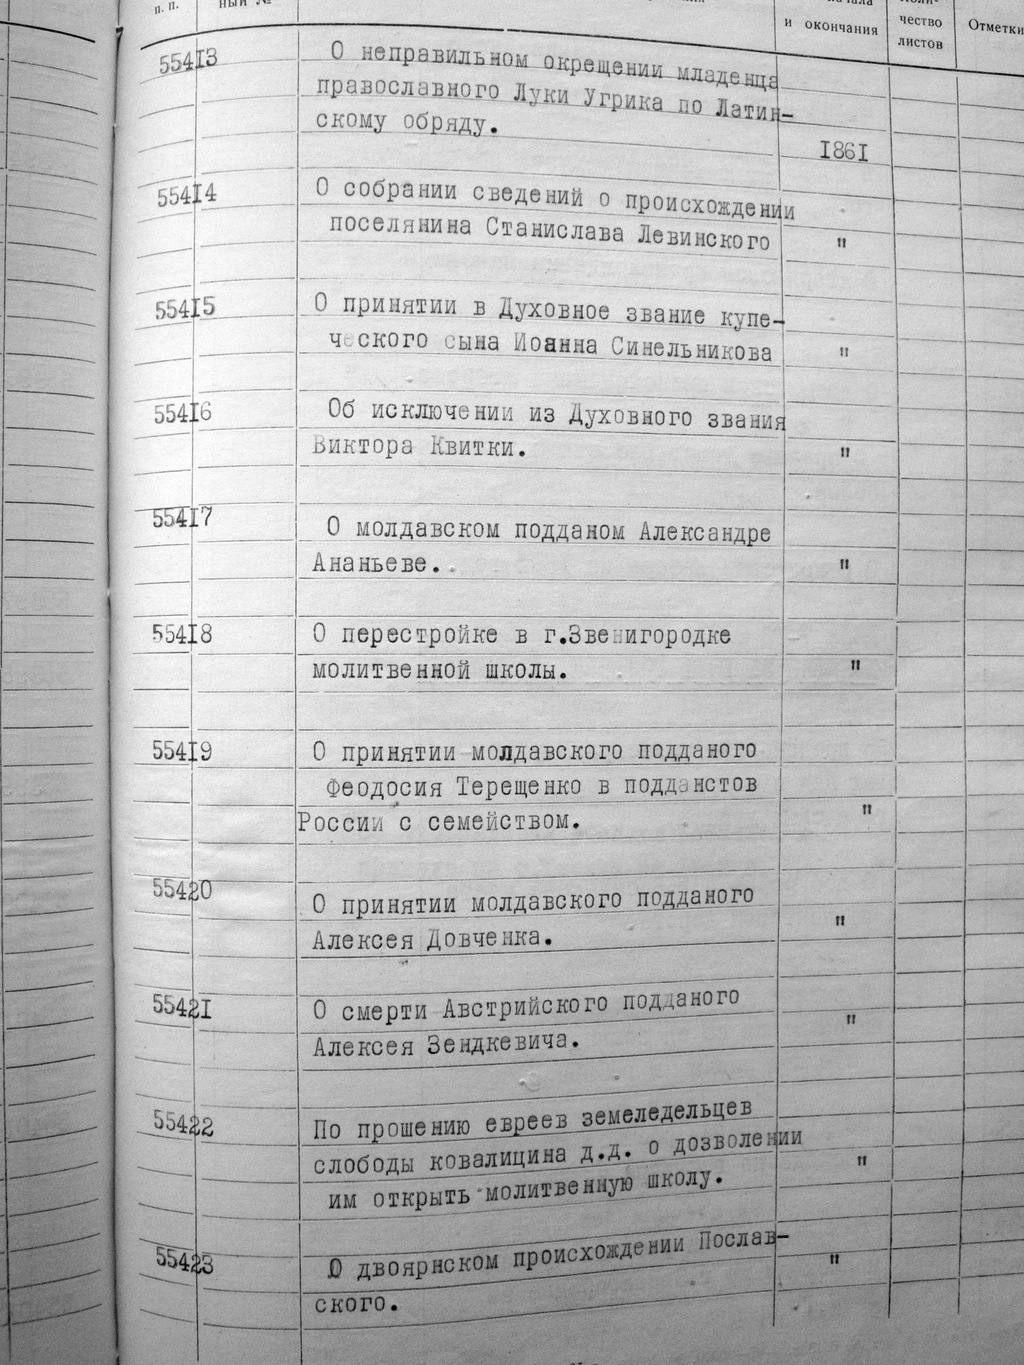 п. п.
ный №
и окончания
чество
листов
Отметки
55413
О неправильном окрещении младенца
православного Луки Угрика по Латин-
скому обряду.
1861
55414
О собрании сведений о происхождении
поселянина Станислава Левинского
"
55415
О принятии в Духовное звание купе-
ческого сына Иоанна Синельникова
"
55416
Об исключении из Духовного звания
Виктора Квитки.
"
55417
О молдавском подданом Александре
Ананьеве.
"
55418
О перестройке в г.Звенигородке
молитвенной школы.
"
55419
О принятии молдавского подданого
Феодосия Терещенко в подданстов
России с семейством.
"
55420
О принятии молдавского подданого
Алексея Довченка.
"
55421
О смерти Австрийского подданого
Алексея Зендкевича.
"
55422
По прошению евреев земеледельцев
слободы ковалицина д.д. о дозволении
им открыть молитвенную школу.
"
55423
О двоярнском происхождении Послав-
ского.
"